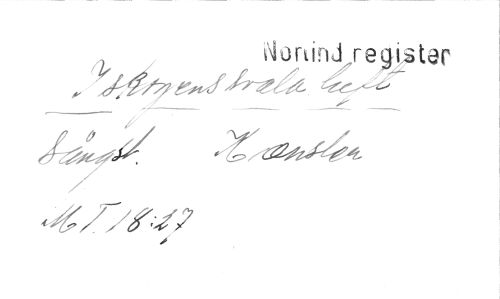 Norlind register
I skogens svala luft
Sångst. Kronslen
MT. 18:27